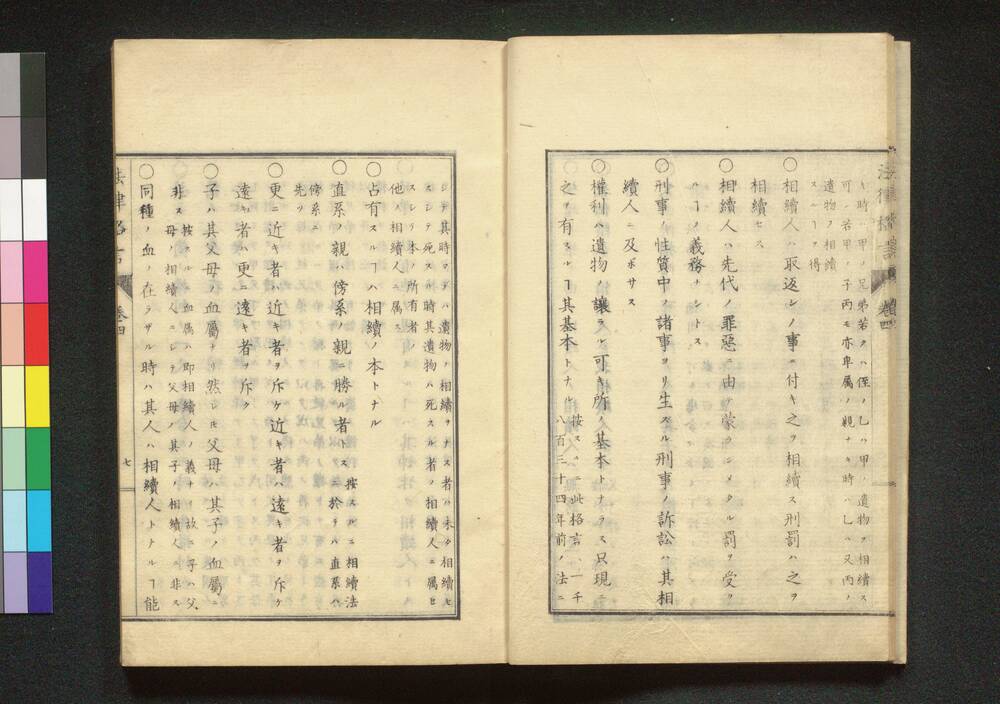 キ時ハ甲ノ兄弟若クハ侄ノ乙ハ甲ノ遺物ヲ相續ス
可シ若甲ノ子丙モ亦卑属ノ親ナキ時ハ乙ハ又丙ノ
遺物ヲ相續
スルヿヲ得
〇相續人ハ取返シノ事ニ付キ之ヲ相續ス刑罰ハ之ヲ
相續セス
〇相續人ハ先代ノ罪惡ニ由テ蒙ラシメタル罰ヲ受ク
ルヿノ義務ナシトス
〇刑事ノ性質中ノ諸事ヨリ生スル刑事ノ訴訟ハ其相
續人ニ及ボサス
〇權利ハ遺物ニ讓ラル可キ所ノ基本トナラス只現ニ
之ヲ有スルヿ其基本トナル
按スルニ此格言ハ一千
八百三十四年前ノ法ニ
シテ其時マデハ遺物ノ相續ヲナス者ハ未タ相續セ
スシテ死スル時其遺物ハ死スル者ノ相續人ニ属セ
スシテ本ノ所有者ノ
他ノ相續人ニ属ス
〇占有スルヿハ相續ノ本トナル
〇直系ノ親ハ傍系ノ親ニ勝ル者トス
按スルニ相續法
ニ於テハ直系ハ
傍系ニ
先ツ
〇更ニ近キ者ハ近キ者ヲ斥ケ近キ者ハ遠キ者ヲ斥ケ
遠キ者ハ更ニ遠キ者ヲ斥ク
〇子ハ其父母ノ血屬ナリ然レ𪜈父母ハ其子ノ血屬ニ
非ス
按スルニ血属ハ即相續人ノ義ナリ故ニ子ハ父
母ノ相續人ニシテ父母ハ其子ノ相續人ニ非ス
〇同種ノ血ノ在ラザル時ハ其人ハ相續人トナルヿ能
卷四
七